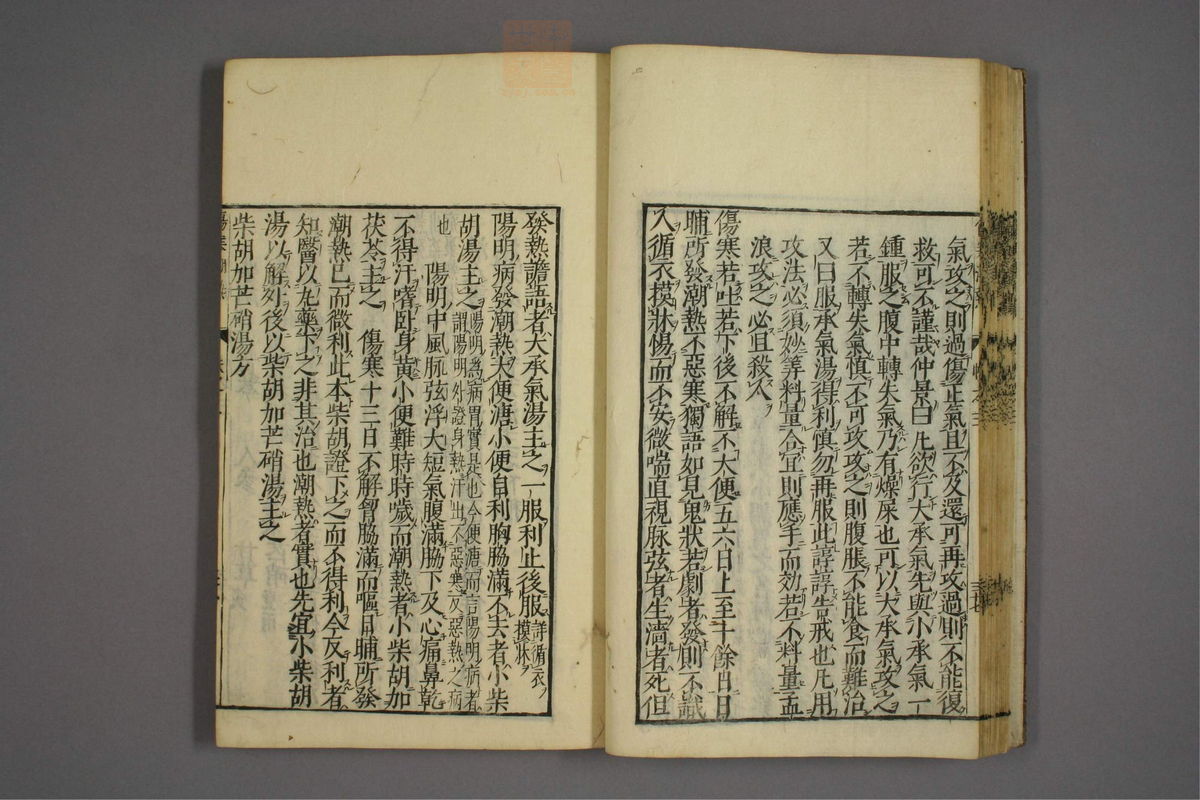 氣攻之則過傷正氣且不及還可再攻過則不能復
救可不謹哉仲景曰凡欲行大承氣先與小承氣一
鍾服之腹中轉失氣乃有燥屎也可以大承氣攻之
若不轉失氣慎不可攻攻之則腹脹不能食而難治
又曰服承氣湯得利慎勿再服此諄諄告戒也凡用
攻法必須妙筭料量合宜則應手而効若不料量孟
浪攻之必且殺人
傷寒若吐若下後不解不大便五六日上至十餘日日
晡所發潮熱不惡寒獨語如見鬼狀若劇者發則不識
人循衣摸牀惕而不安微喘直視脉弦者生濇者死但
發熱譫語者大承氣湯主之一服利止後服詳循衣摸牀
陽明病發潮熱大便溏小便自利胸脇滿不去者小柴
胡湯主之陽明為病胃實是也今便溏而言陽明病者
謂陽明外證身熱汗出不惡寒反惡熱之病
也
陽明中風脉弦浮大短氣腹滿脇下及心痛鼻乾
不得汗嗜卧身黃小便難時時噦而潮熱者小柴胡加
茯苓主之　傷寒十三日不解胷脇滿而嘔日晡所發
潮熱已而微利此本柴胡證下之而不得利今反利者
知醫以丸藥下之非其治也潮熱者實也先宜小柴胡
湯以解外後以柴胡加芒硝湯主之
柴胡加芒硝湯方